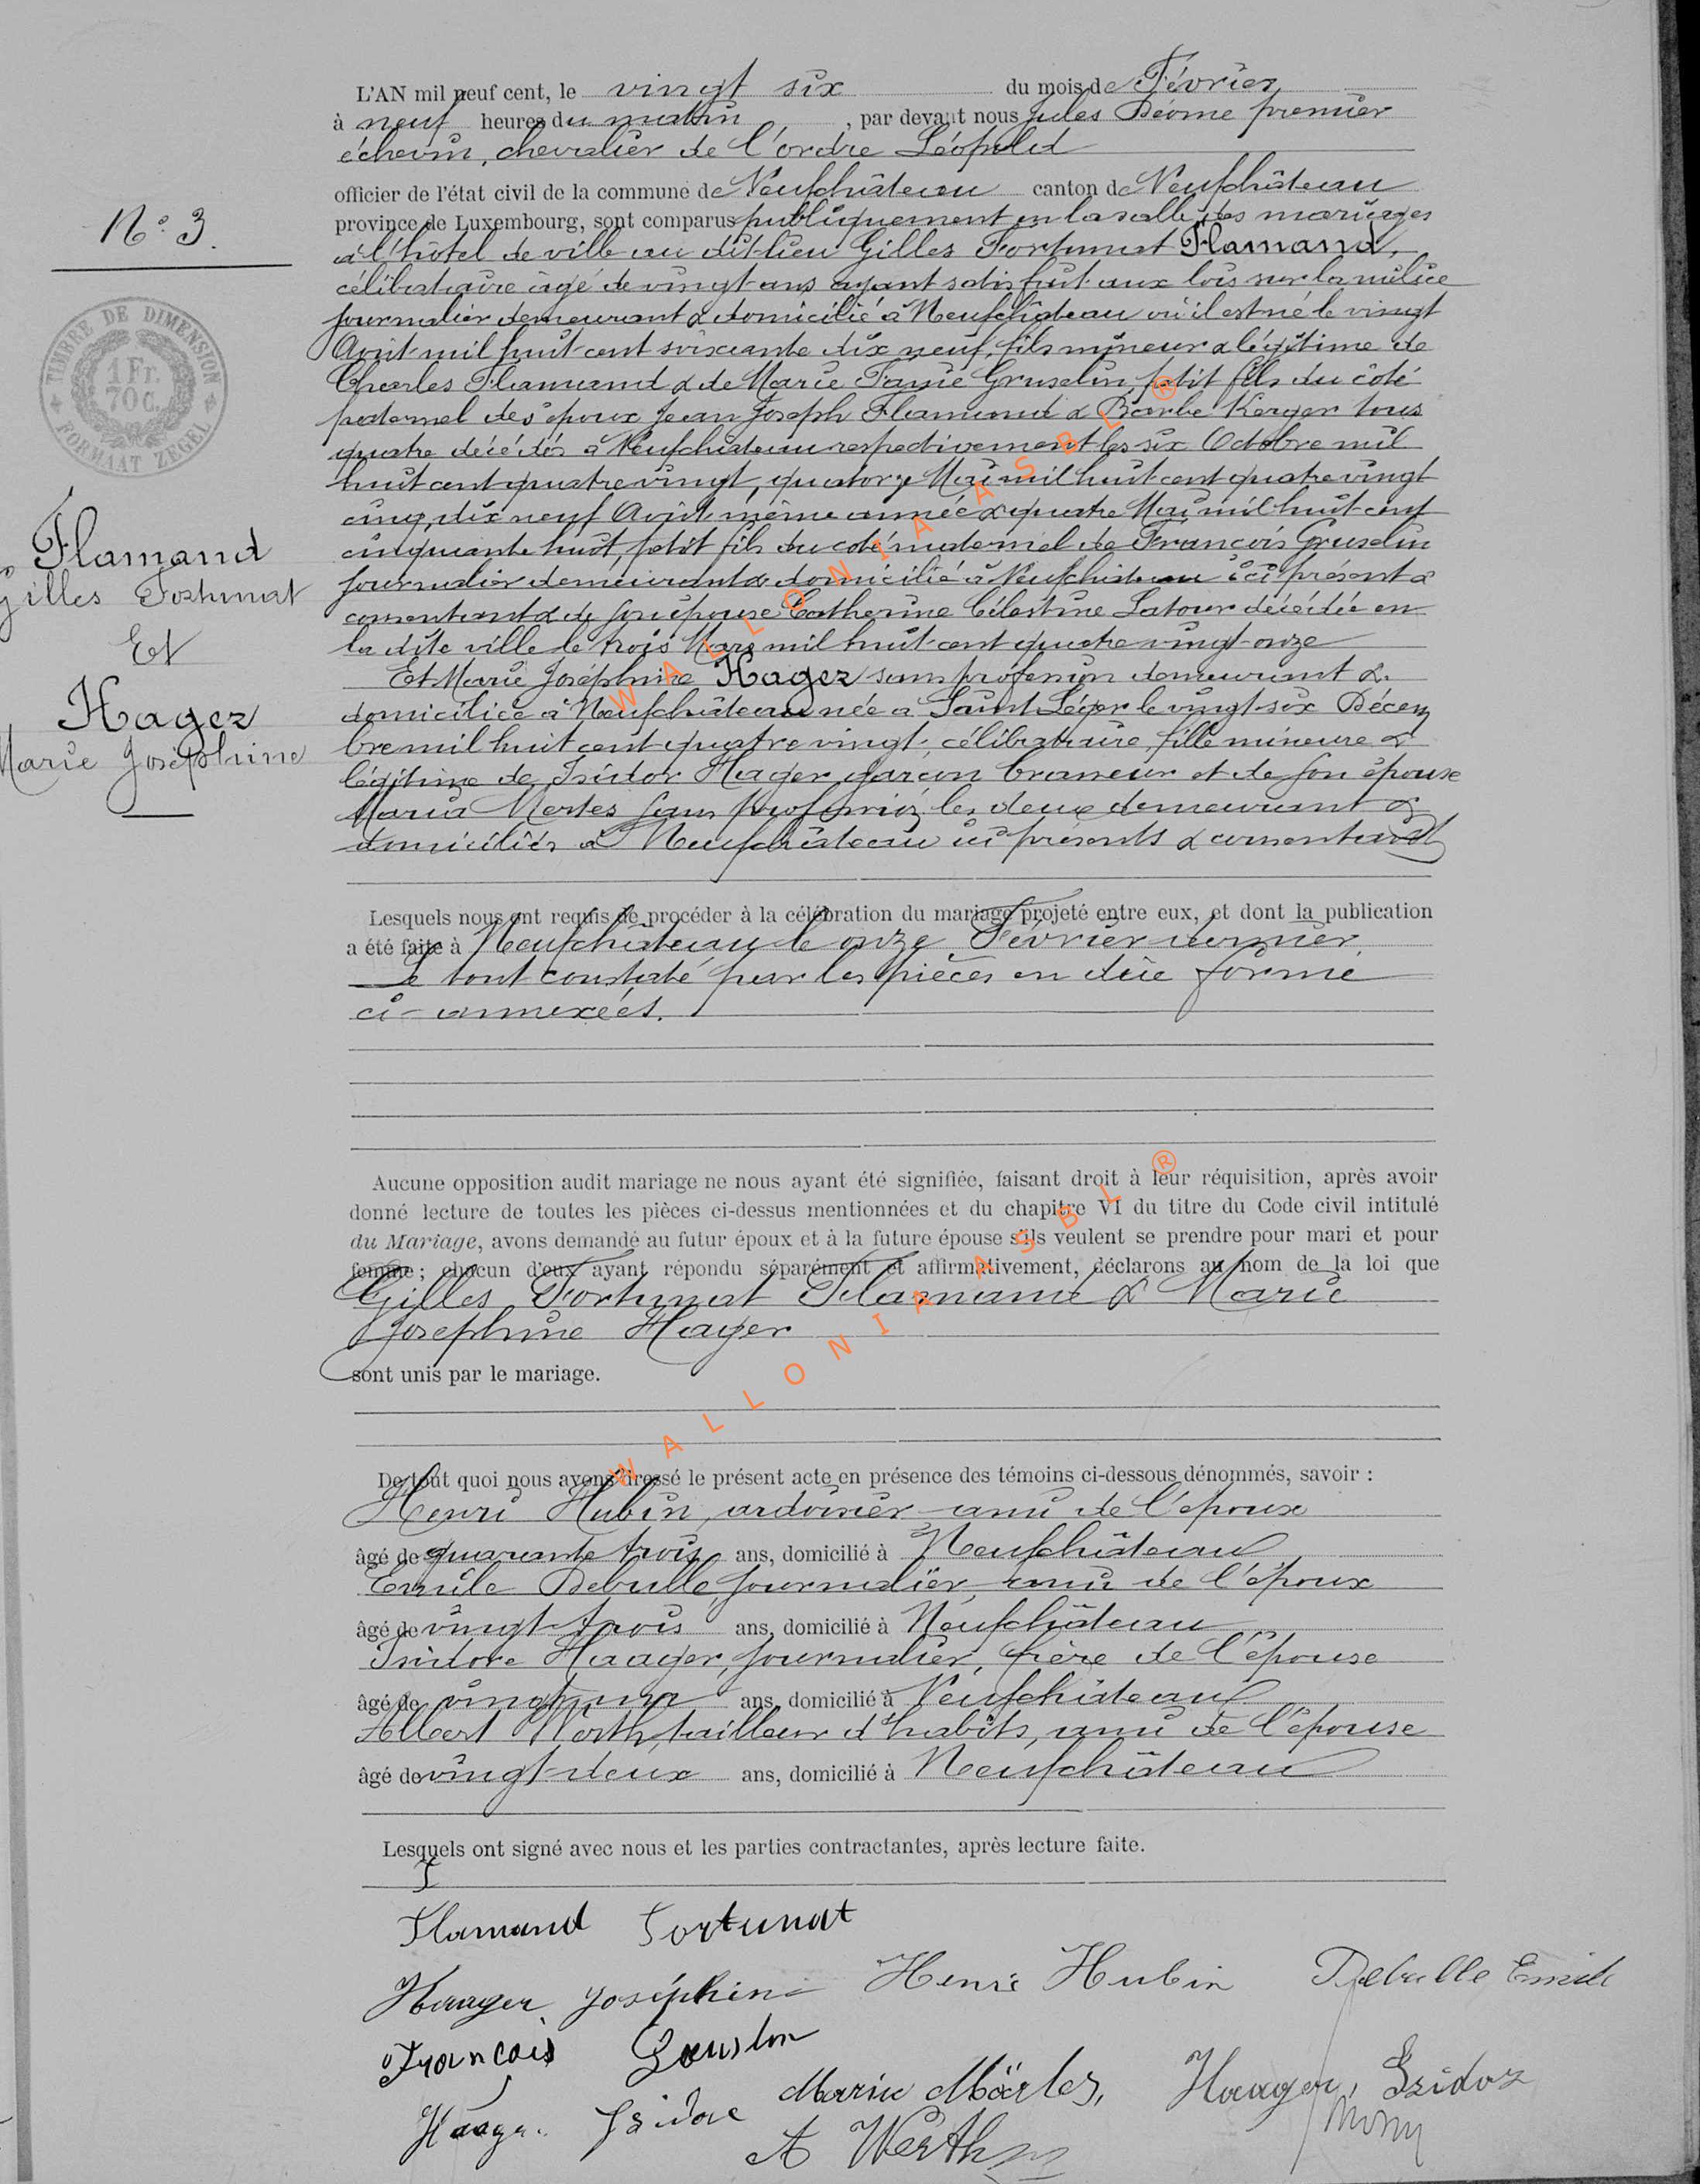 L'AN mil neuf cent, le vingt six du mois de Février
à neuf heures du matin, par devant nous Jules Déome premier
échevin, chevalier de l'ordre Léopold
officier de l'état civil de la commune de Neufchâteau canton de Neufchâteau
province de Luxembourg, sont comparus publiquement en la salle des mariages
N° 3.
à l'hôtel de ville au dit lieu Gilles Fortunat Flamand,
célibataire âgé de vingt ans ayant satisfait aux lois sur la milice
journalier demeurant & domicilié à Neufchâteau où il est né le vingt
Août mil huit cent soixante dix neuf, fils mineur & légitime de
Charles Flamand & de Marie Fanie Gruselin, petit fils du côté
paternel des époux Jean Joseph Flamand & Barbe Kerger tous
quatre décédés à Neufchâteau respectivement les six Octobre mil
huit cent quatre vingt, quatorze Mai mil huit cent quatre vingt
cinq, dix neuf Août même année & quatre Mai mil huit cent
cinquante huit, petit fils du coté maternel de François Gruselin
journalier demeurant & domicilié à Neufchâteau ici présent &
consentant & de son épouse Catherine Célestine Latour décédée en
la dite ville le trois Mars mil huit cent quatre vingt onze
Et Marie Joséphine Hager sans profession demeurant &
domiciliée à Neufchâteau née à Saint Léger le vingt-six Décem
bre mil huit cent quatre vingt, célibataire, fille mineure &
légitime de Isidor Hager garçon brasseur et de son épouse
Maria Mertes sans profession, les deux demeurant &
domiciliés à Neufchâteau ici présents & consentant
TIMBRE DE DIMENSION
1 Fr.
70 c.
FORMAAT ZEGEL
Flamand
Gilles Fortunat
Et
Hager
Marie Joséphine
Lesquels nous ont requis de procéder à la célébration du mariage projeté entre eux, et dont la publication
a été faite à Neufchâteau le onze Février dernier.
Le tout constaté par les pièces en dûe forme
ci-annexées.
Aucune opposition audit mariage ne nous ayant été signifiée, faisant droit à leur réquisition, après avoir
donné lecture de toutes les pièces ci-dessus mentionnées et du chapitre VI du titre du Code civil intitulé
du Mariage, avons demandé au futur époux et à la future épouse s'ils veulent se prendre pour mari et pour
femme; chacun d'eux ayant répondu séparément et affirmativement, déclarons au nom de la loi que
Gilles Fortunat Flamand & Marie
Josephine Hager
sont unis par le mariage.
De tout quoi nous avons dressé le présent acte en présence des témoins ci-dessous dénommés, savoir :
Henri Hubin, ardoisier ami de l'époux
âgé de quarante trois ans, domicilié à Neufchâteau
Emile Debulle journalier ami de l'époux
âgé de vingt-trois ans, domicilié à Neufchâteau
Isidore Haager, journalier, frère de l'épouse
âgé de vingt un ans, domicilié à Neufchâteau
Albert Werth, tailleur d'habits, ami de l'épouse
âgé de vingt-deux ans, domicilié à Neufchâteau
Lesquels ont signé avec nous et les parties contractantes, après lecture faite.
Flamand Fortunat
Haager Joséphine Henri Hubin Debulle Emile
François
Haager Isidore Marie Märtes, Haager, Isidor
A Werth
WALLONIA ASBL ®
WALLONIA ASBL ®